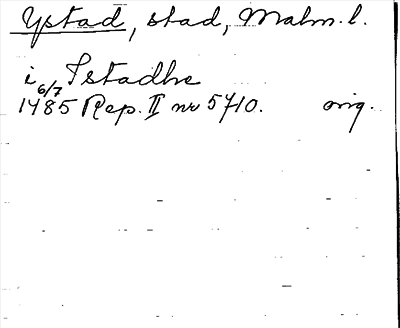 Ystad, stad, Malm. l.
i Istadhe
6/7
1485 Rep. II nr 5710. orig.